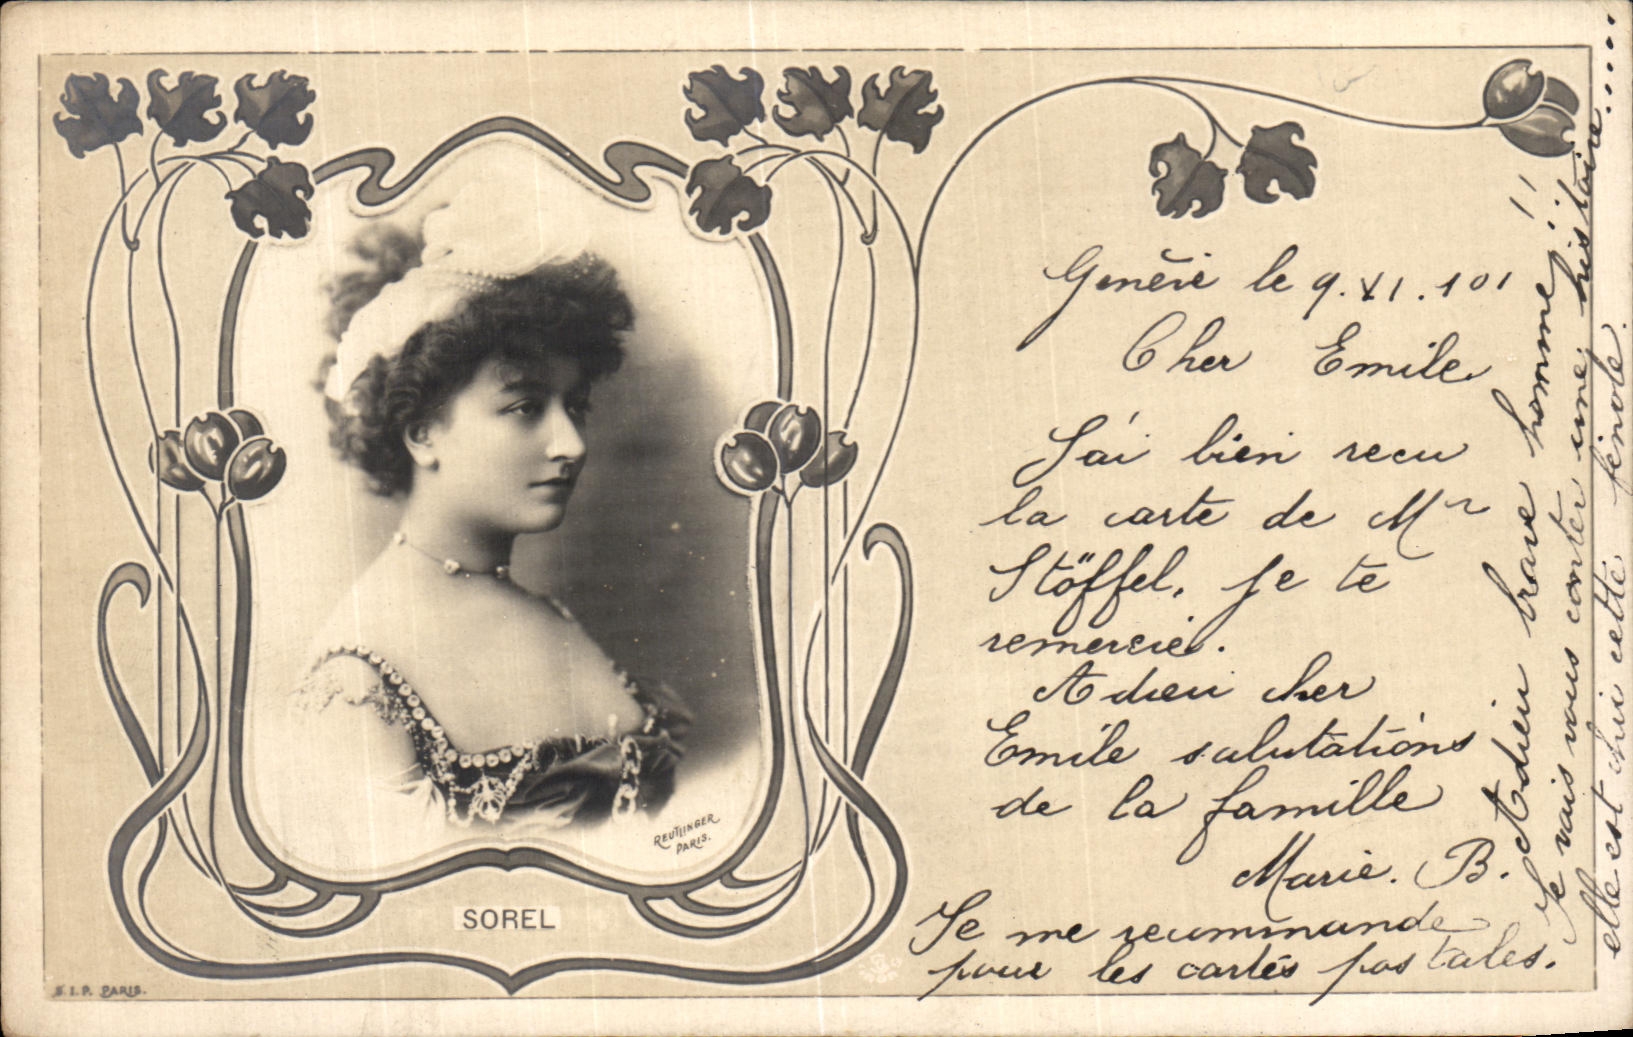 Genève le 9.XI.101
Cher Emile
J'ai bien recu
la carte de Mr
Stöffel, je te
remercie.
Adieu cher
Emile salutations
de la famille
Marie. B.
Je me recummande
pour les cartes postales.
Adieu brave homme!!
Je vais vous conter une histoire.....
elle est chui cette
REUTLINGER
PARIS.
SOREL
S.I.P. PARIS.